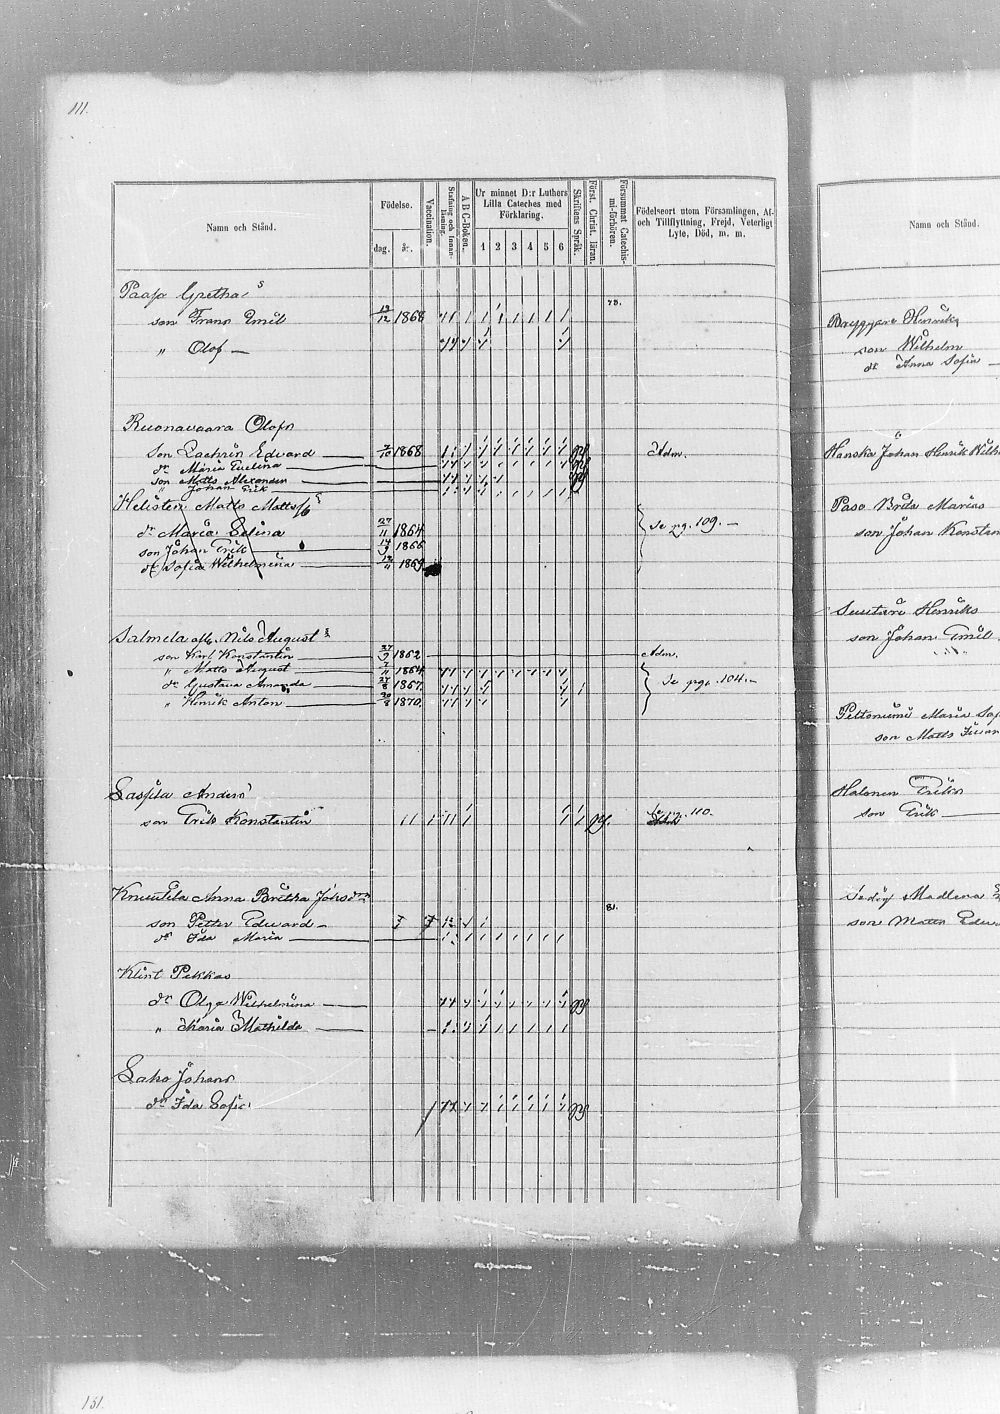 111.
Namn och Stånd.
Födelse.
dag.
år.
Vaccination.
Stafning och Innan-läsning.
A B C-Boken.
Ur minnet D:r Luthers
Lilla Cateches med
Förklaring.
1 2 3 4 5 6
Skriftens Språk.
Först. Christ. läran.
Försummat Catechis-mi-förhören.
Födelseort utom Församlingen, Af-
och Tillflyttning, Frejd, Veterligt
Lyte, Död, m. m.
Paaso Gretha
78.
son Frans Emil 19/12 1868
" Olof
Ruonavaara Olofs
son Zachrin Edvard 7/10 1868 Adm.
dr Maria Evelina
son Matts Alexander
" Johan Erik
Helisten Matts Matts
dr Maria Selina 27/11 1864 Se pg. 109.
son Johan Erik 1866
dr Sofia Wilhelmina 1869
Salmela afl. Nils August
son Karl Konstantin 1862 Adm.
" Matts August 1864
dr Gustava Amanda 27/8 1867. Se pg. 104.
" Henrik Anton 20/8 1870.
Laspila Anders
son Erik Konstantin 110.
Knuutila Anna Brita Johsdr
81.
son Petter Edward
dr Ida Maria
Klint Pekkas
dr Olga Wilhelmina
" Maria Mathilda
Laho Johans
dr Ida Sofia
Namn och Stånd.
Bryggare Henriks
son Wilhelm
dr Anna Sofia
Hanska Johan Henrik Wilh
Paso Brita Marias
son Johan Konstan
Henriks
son Johan Emil
Peltoniemi Maria Sof
son Matts
Halonen Eriks
son Erik
Madlena
son Matts Edu
131.